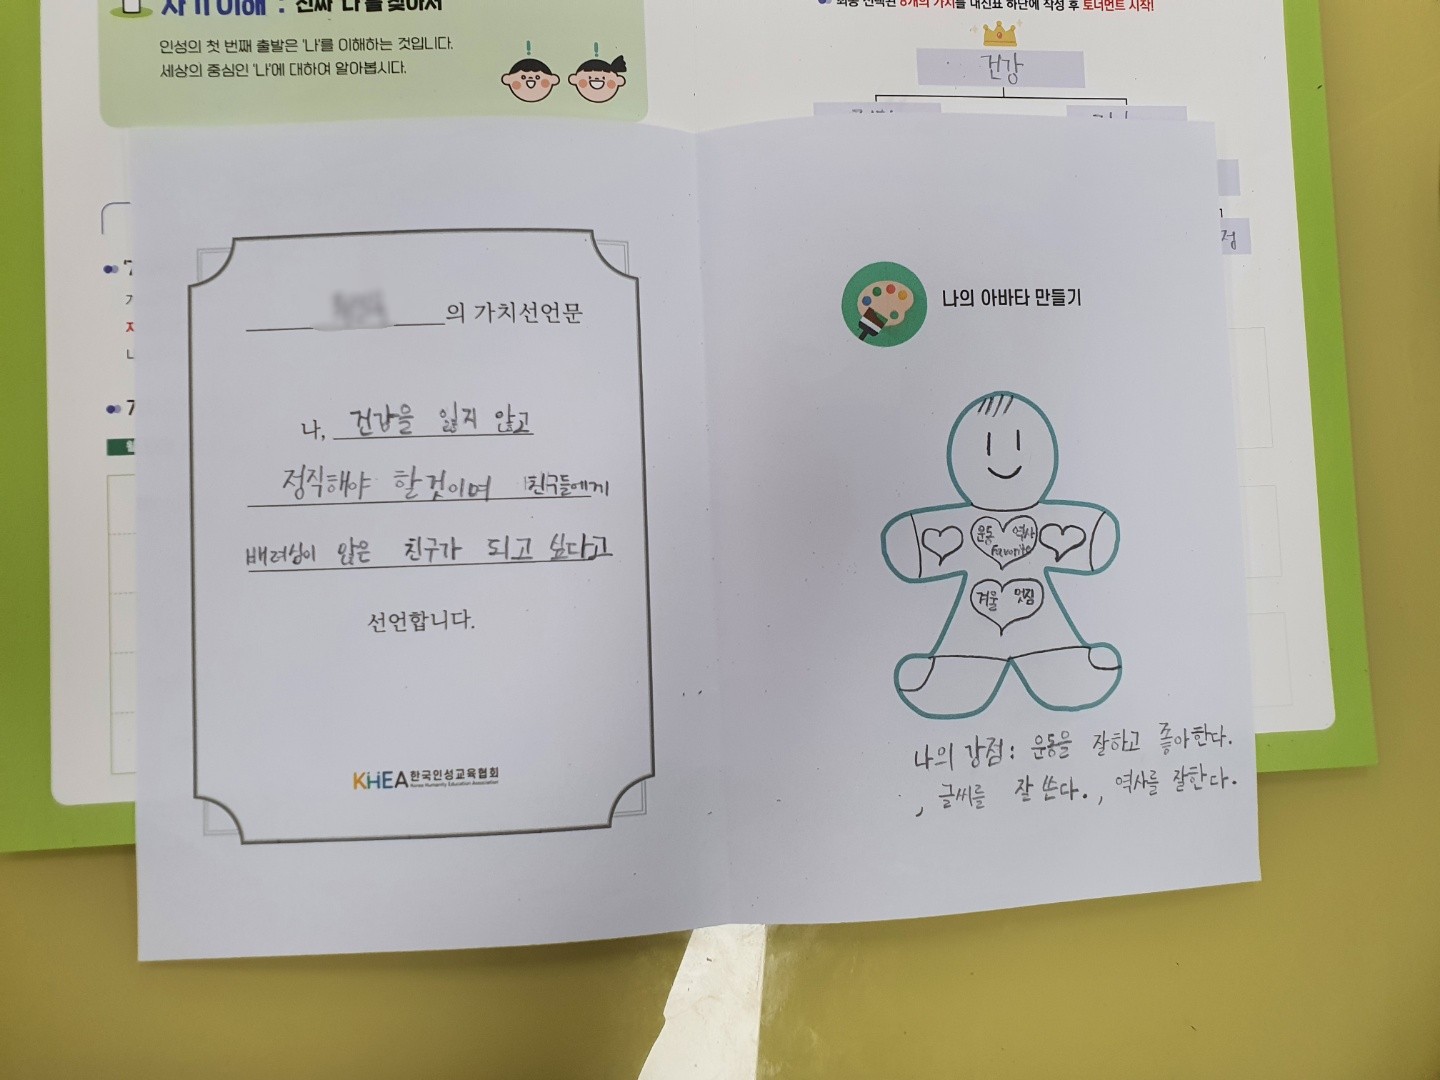 자기이해 : 진짜 '나'를 찾아서
인성의 첫 번째 출발은 '나'를 이해하는 것입니다.
세상의 중심인 '나'에 대하여 알아봅시다.
최종 선택된 8개의 가치를 대진표 하단에 작성 후 토너먼트 시작!
건강
정
의 가치선언문
나, 건강을 잃지 않고
정직해야 할것이며 친구들에게
배려심이 많은 친구가 되고 싶다고
선언합니다.
KHEA 한국인성교육협회
Korea Humanity Education Association
나의 아바타 만들기
운동 역사
Favorite
겨울 멋짐
나의 강점 : 운동을 잘하고 좋아한다.
, 글씨를 잘 쓴다. , 역사를 잘한다.